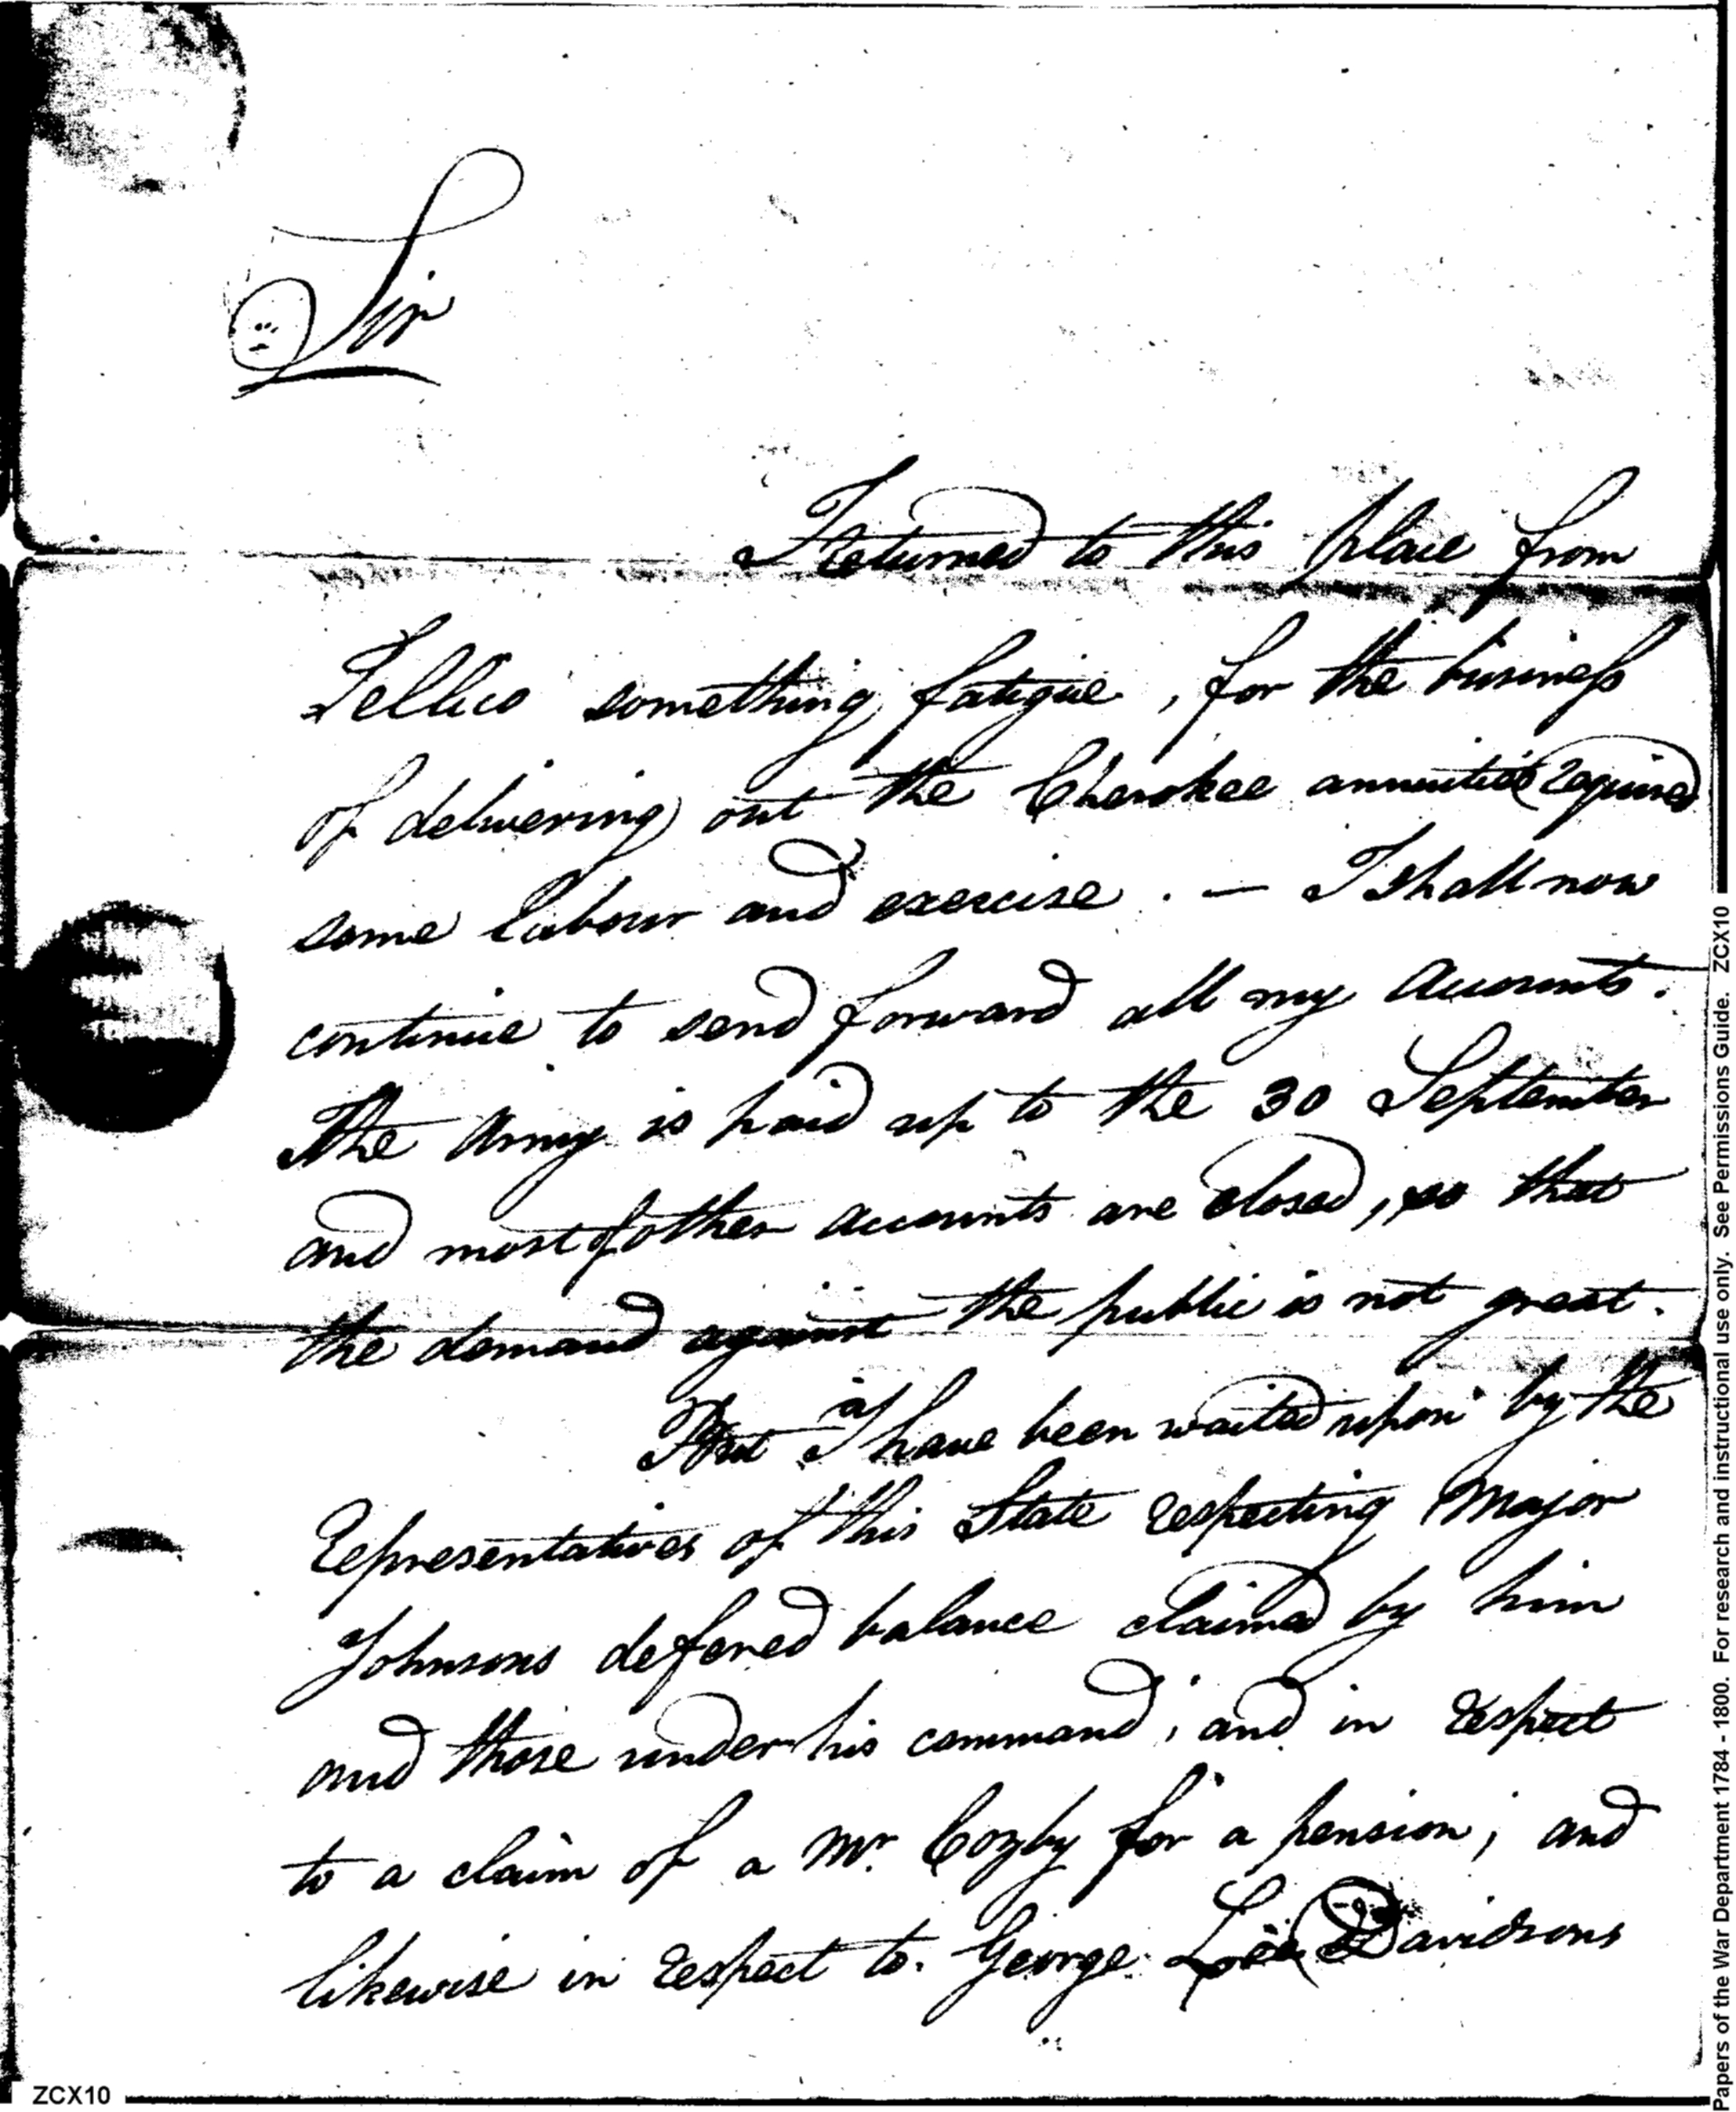 Sir
I returned to this place from
Tellico something fatigue, for the business
of delivering out the Cherokee annuities required
some labour and exercise. — I shall now
continue to send forward all my accounts.
The Army is paid up to the 30 September
and most of other accounts are closed, so that
the demand against the public is not great.
But I have been waited upon by the
Representatives of this State respecting Major
Johnsons defered balance claimed by him
and those under his command; and in respect
to a claim of a Mr. Cozby for a pension; and
likewise in respect to. George Lee Davidsons
ZCX10
Papers of the War Department 1784 - 1800. For research and instructional use only. See Permissions Guide. ZCX10